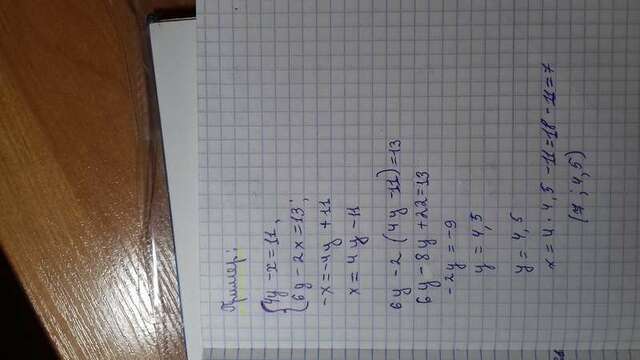 Пример:
4y - x = 11,
6y - 2x = 13;
-x = -4y + 11
x = 4y - 11
6y - 2(4y - 11) = 13
6y - 8y + 22 = 13
-2y = -9
y = 4,5
y = 4,5
x = 4 · 4,5 - 11 = 18 - 11 = 7
(7; 4,5)